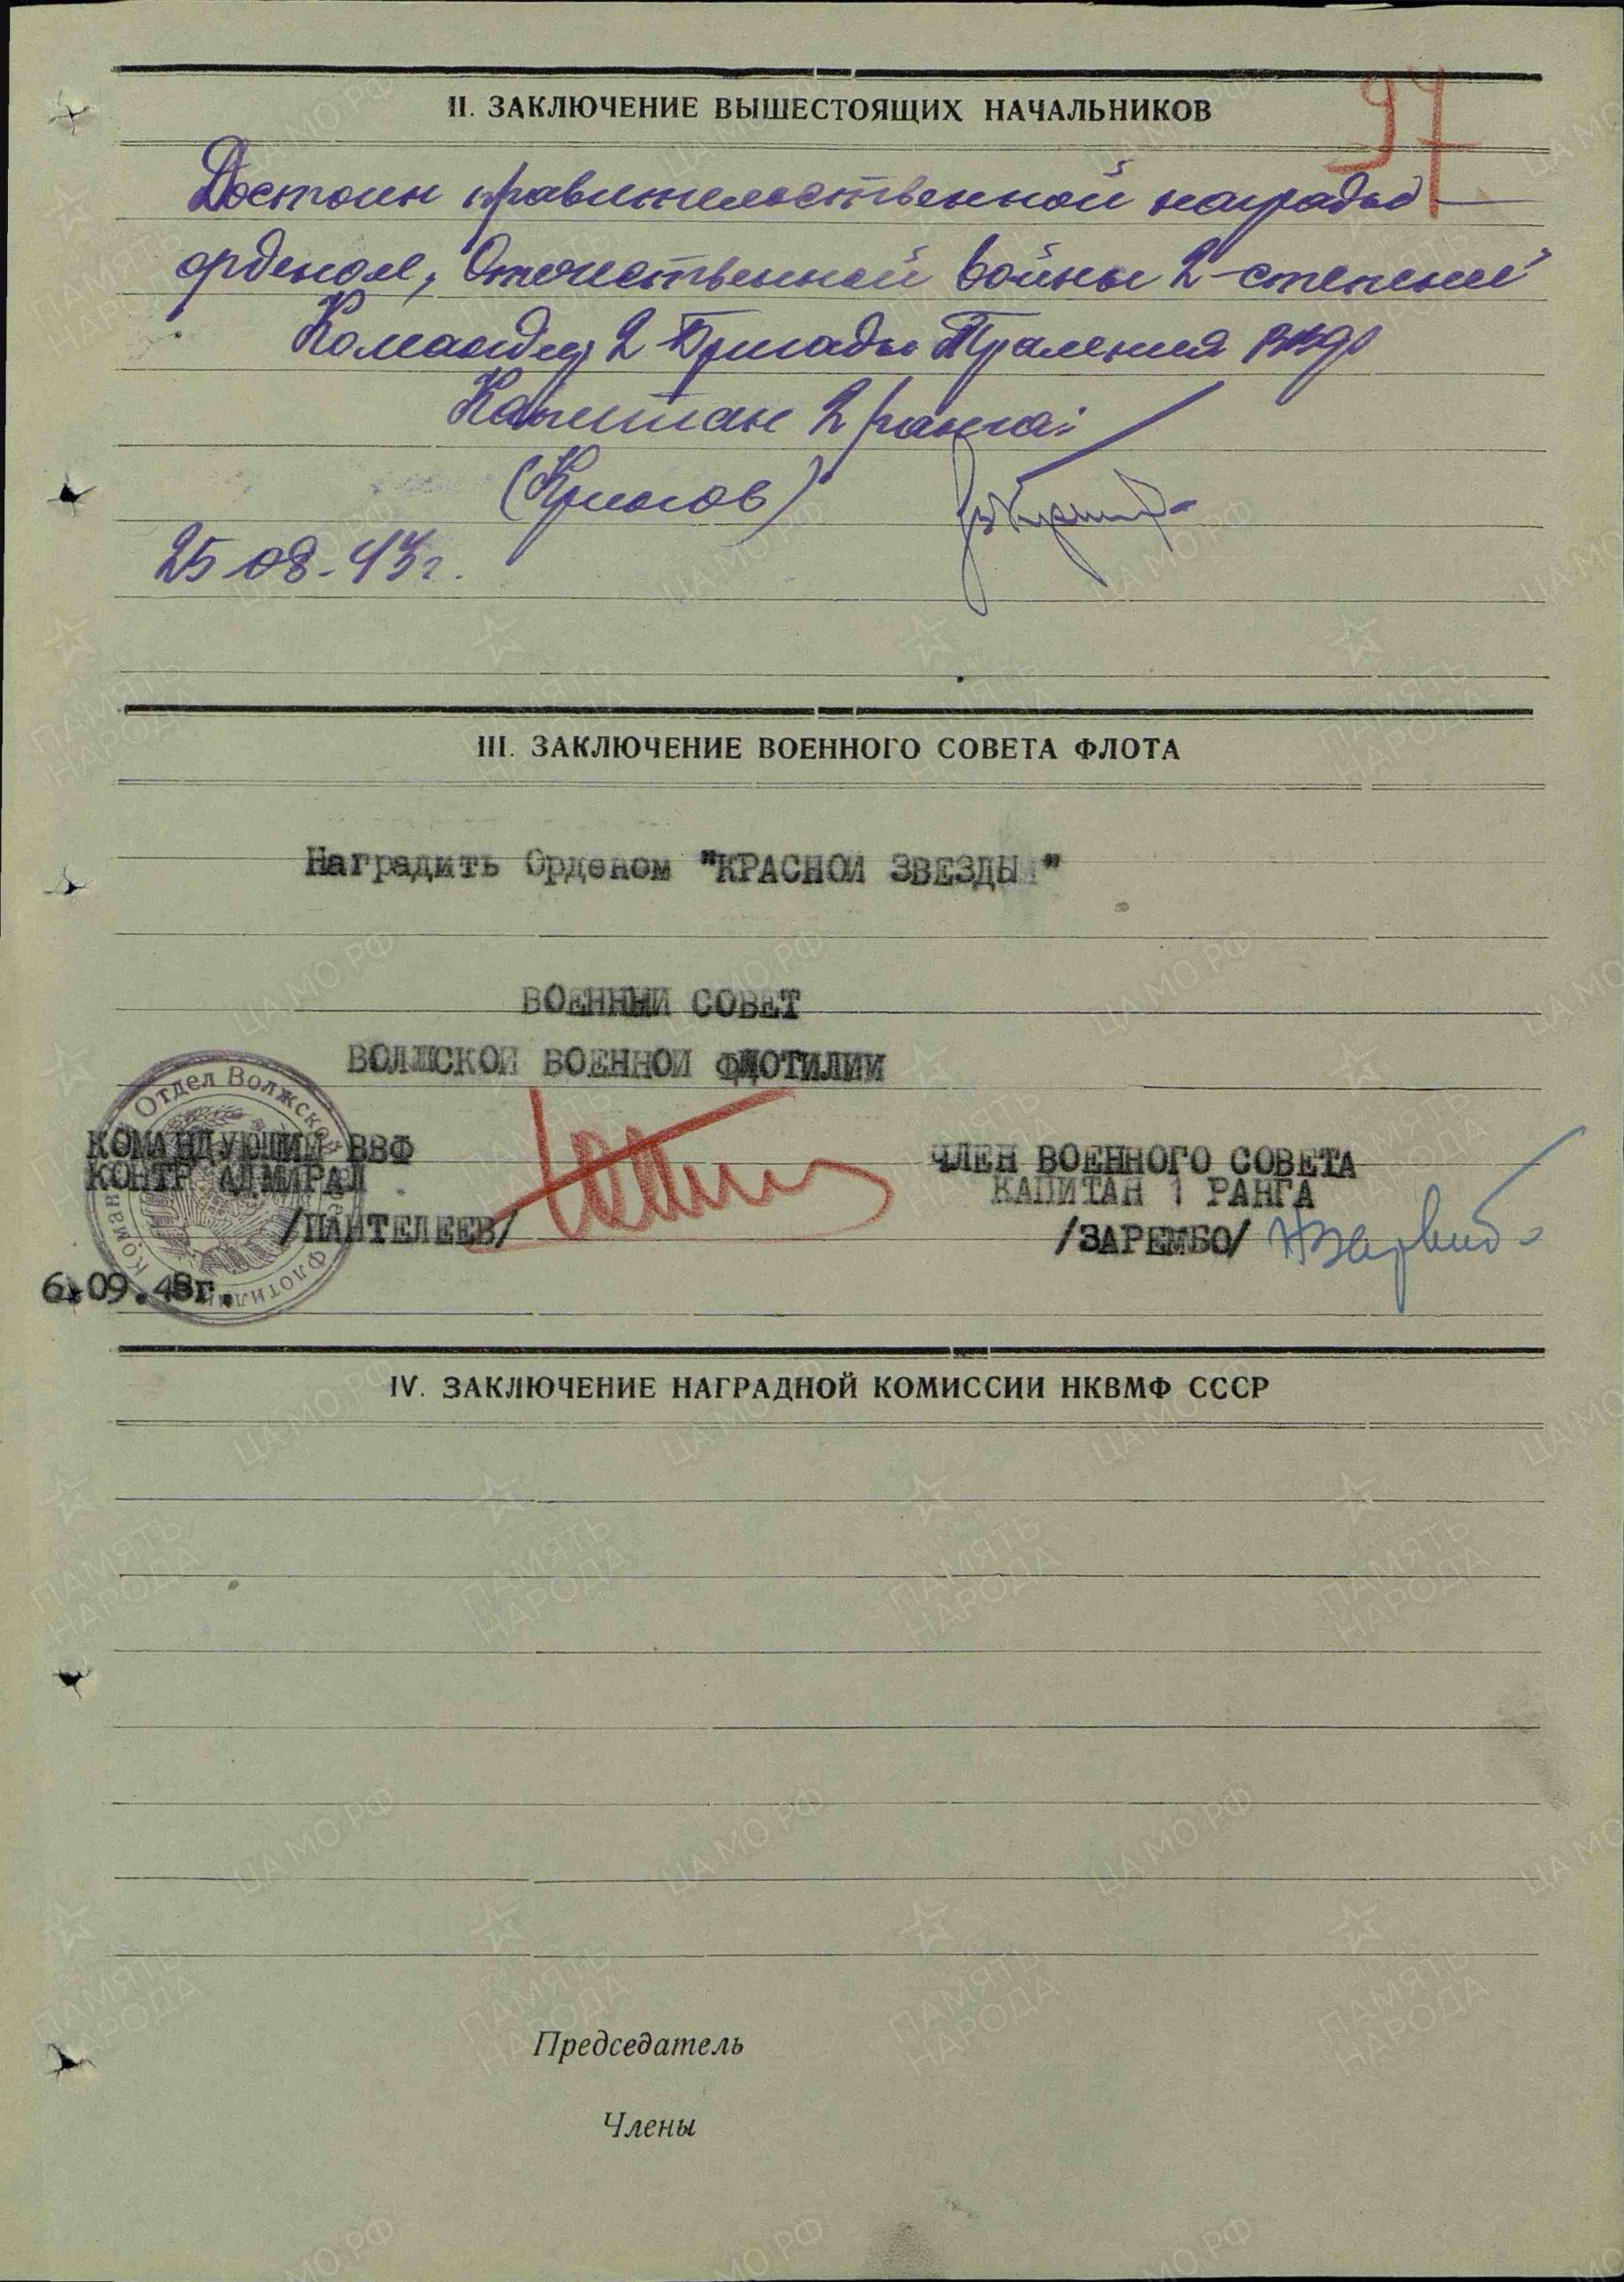 97
II. ЗАКЛЮЧЕНИЕ ВЫШЕСТОЯЩИХ НАЧАЛЬНИКОВ
Достоин правительственной награды
орденом, Отечественной войны 2-степени"
Командир 2 Бригады Траления ВВФ
Капитан 2 ранга:
(Крылов)
25-08-43г.
III. ЗАКЛЮЧЕНИЕ ВОЕННОГО СОВЕТА ФЛОТА
Наградить Орденом "КРАСНОЙ ЗВЕЗДЫ"
ВОЕННЫЙ СОВЕТ
ВОЛЖСКОЙ ВОЕННОЙ ФЛОТИЛИИ
Отдел Волжской
КОМАНДУЮЩИЙ ВВФ
КОНТР АДМИРАЛ
/ПАНТЕЛЕЕВ/
ЧЛЕН ВОЕННОГО СОВЕТА
КАПИТАН 1 РАНГА
/ЗАРЕМБО/
6.09.43г.
IV. ЗАКЛЮЧЕНИЕ НАГРАДНОЙ КОМИССИИ НКВМФ СССР
Председатель
Члены
ПАМЯТЬ НАРОДА
ЦАМО.РФ